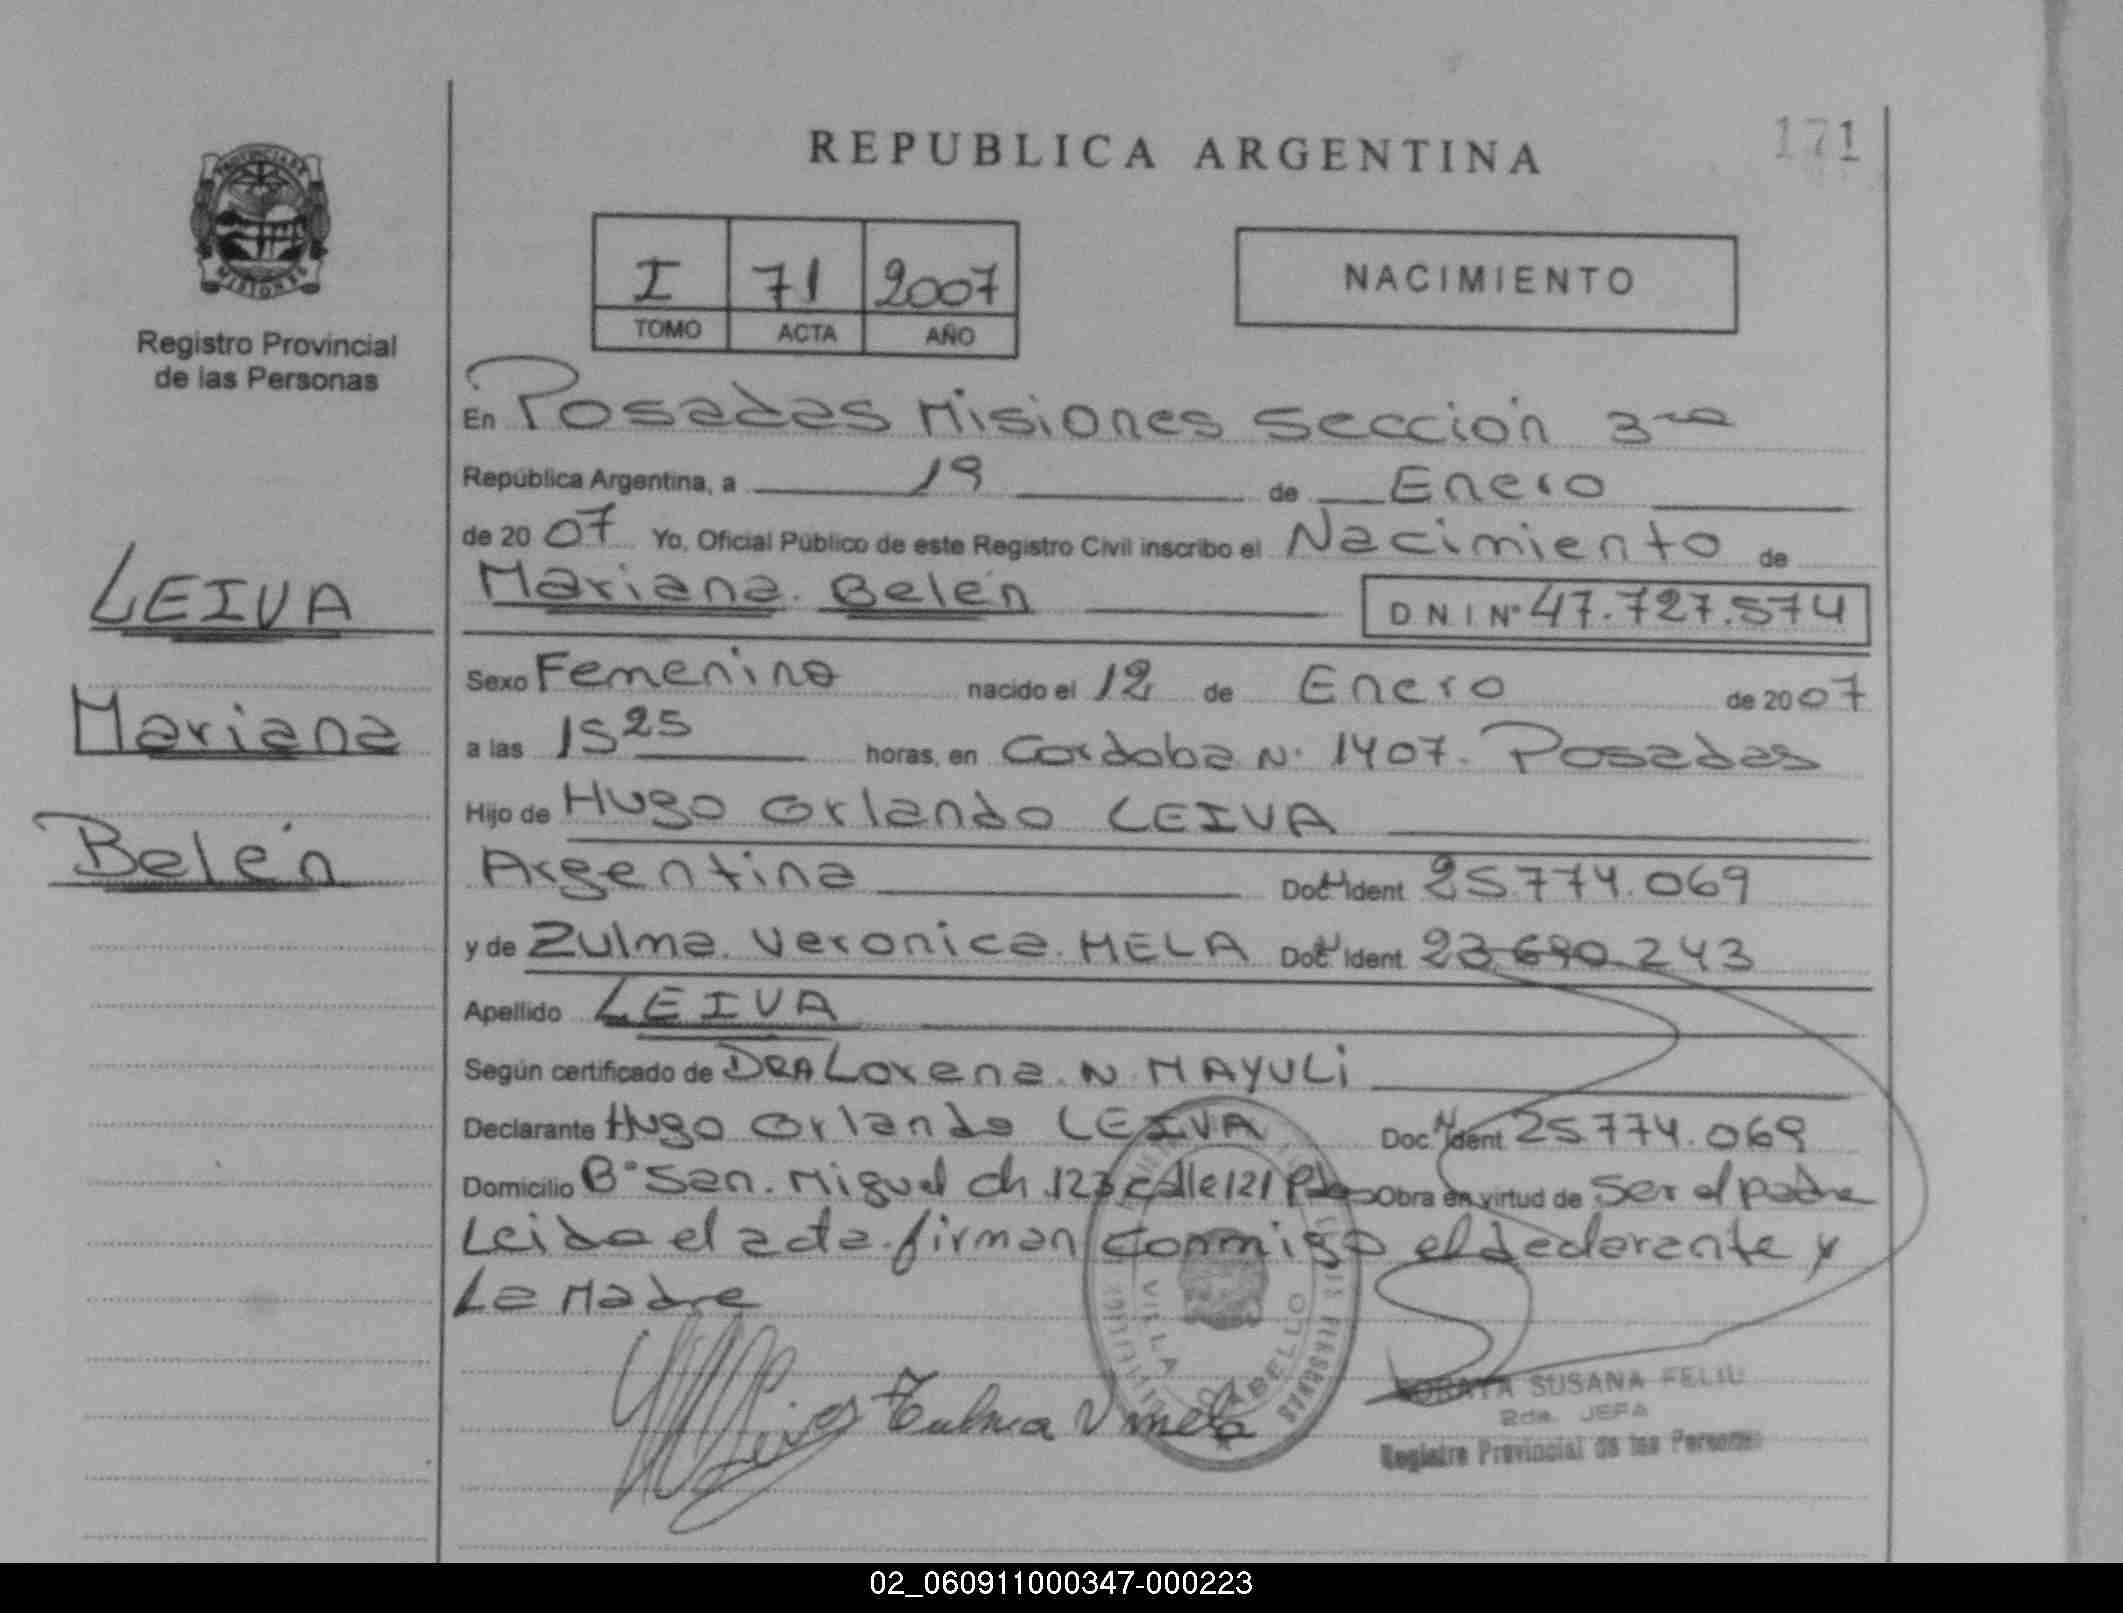 REPUBLICA ARGENTINA
171
PROVINCIA DE
MISIONES
Registro Provincial
de las Personas
I 71 2007
TOMO ACTA AÑO
NACIMIENTO
En Posadas Misiones Sección 3ra
República Argentina, a 19 de Enero
de 2007 Yo, Oficial Público de este Registro Civil inscribo el Nacimiento de
Mariana Belén DNI Nº 47.727.574
LEIVA
Mariana
Belén
Sexo Femenino nacido el 12 de Enero de 2007
a las 15 25 horas, en Cordoba N. 1407. Posadas
Hijo de Hugo Orlando LEIVA
Argentina Doc. Ident 25.774.069
y de Zulma Veronica MELA Doc. Ident 23.690.243
Apellido LEIVA
Según certificado de DRA Lorena N MAYULi
Declarante Hugo Orlando LEIVA Doc. Ident 25774.069
Domicilio B° San Miguel ch 123 calle 121 Pdas Obra en virtud de Ser el padre
Leida el acta firman conmigo el declarante y
La Madre
Zulma V Mela
VILLA CABELLO
SORAYA SUSANA FELIU
2da. JEFA
Registro Provincial de las Personas
02_060911000347-000223